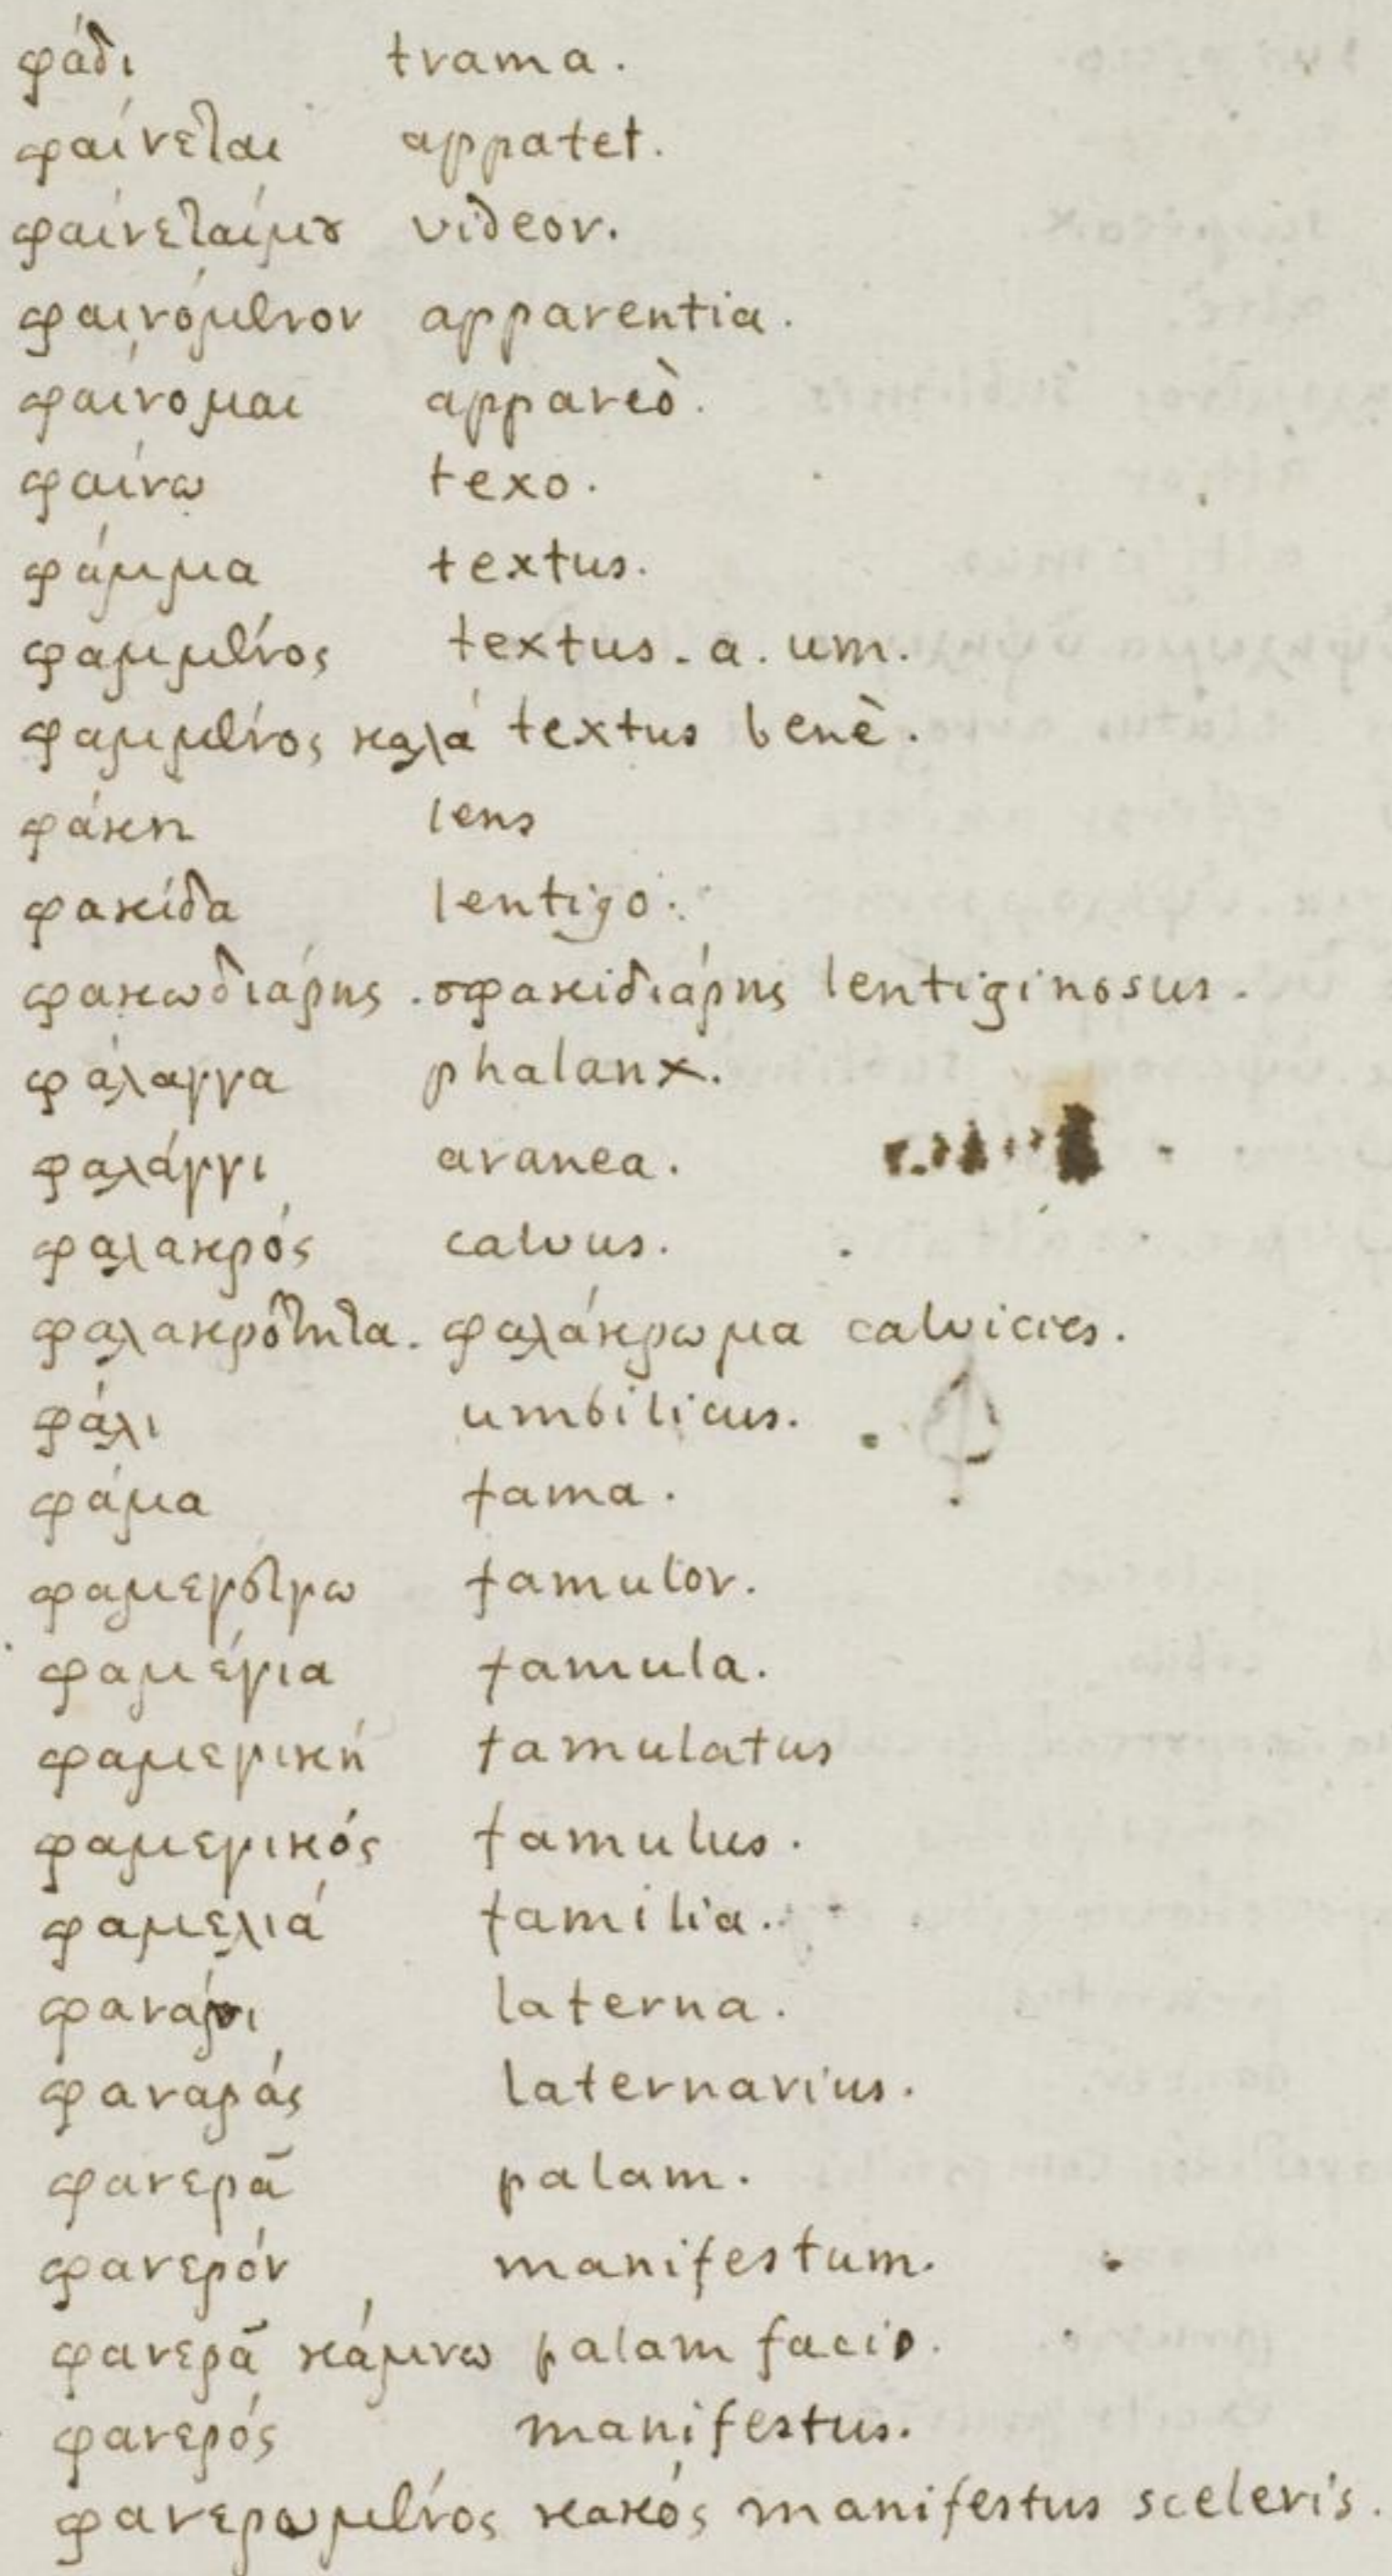 φάδι trama.
φαίνεται appatet.
φαίνεταίμου videor.
φαινόμενον apparentia.
φαίνομαι appareò.
φαίνω texo.
φάμμα textus.
φαμμένος textus. a. um.
φαμμένος καλά textus benè.
φάκη lens
φακίδα lentigo.
φακωδιάρης. σφακιδιάρης lentiginosus.
φάλαγγα phalanx.
φαλάγγι aranea.
φαλακρός calvus.
φαλακρότητα. φαλάκρωμα calvicies.
φάλι umbilicus.
φάμα fama.
φαμεγεύγω famulor.
φαμέγια famula.
φαμεγική famulatus
φαμεγικός famulus.
φαμελιά familia.
φανάρι laterna.
φαναράς laternarius.
φανερᾶ palam.
φανερόν manifestum.
φανερᾶ κάμνω palam facio.
φανερός manifestus.
φανερωμένος κακός manifestus sceleris.